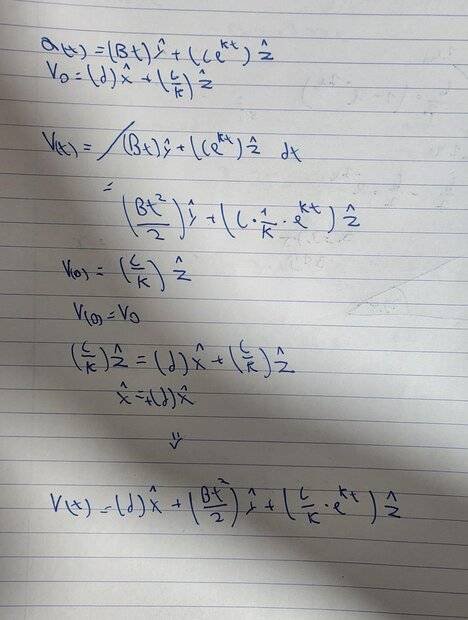 a(t) = (Bt) ŷ + (Ce^kt) ẑ
V₀ = (d) x̂ + (C/k) ẑ
V(t) = ∫(Bt) ŷ + (Ce^kt) ẑ dt
= (Bt²/2) ŷ + (C · 1/k · e^kt) ẑ
V(0) = (C/k) ẑ
V(0) = V₀
(C/k) ẑ = (d) x̂ + (C/k) ẑ
x̂ = +(d) x̂
⇓
V(t) = (d) x̂ + (Bt²/2) ŷ + (C/k · e^kt) ẑ